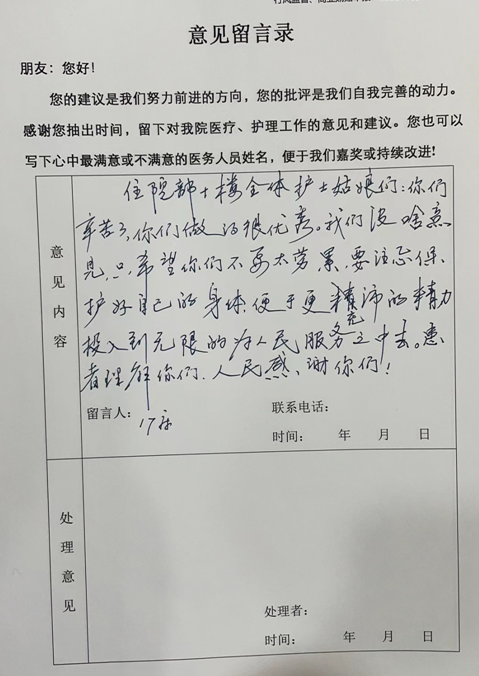 意见留言录
朋友：您好！
您的建议是我们努力前进的方向，您的批评是我们自我完善的动力。
感谢您抽出时间，留下对我院医疗、护理工作的意见和建议。您也可以
写下心中最满意或不满意的医务人员姓名，便于我们嘉奖或持续改进!
意见内容
住院部十楼全体护士姑娘们：你们
辛苦了，你们做的很优秀。我们没啥意
见，只希望你们不要太劳累，要注意保
护好自己的身体，便于更精沛的精力
充
投入到无限的为人民服务之中去。患
者理解你们，人民感谢你们！
留言人：17床
联系电话：
时间： 年 月 日
处理意见
处理者：
时间： 年 月 日